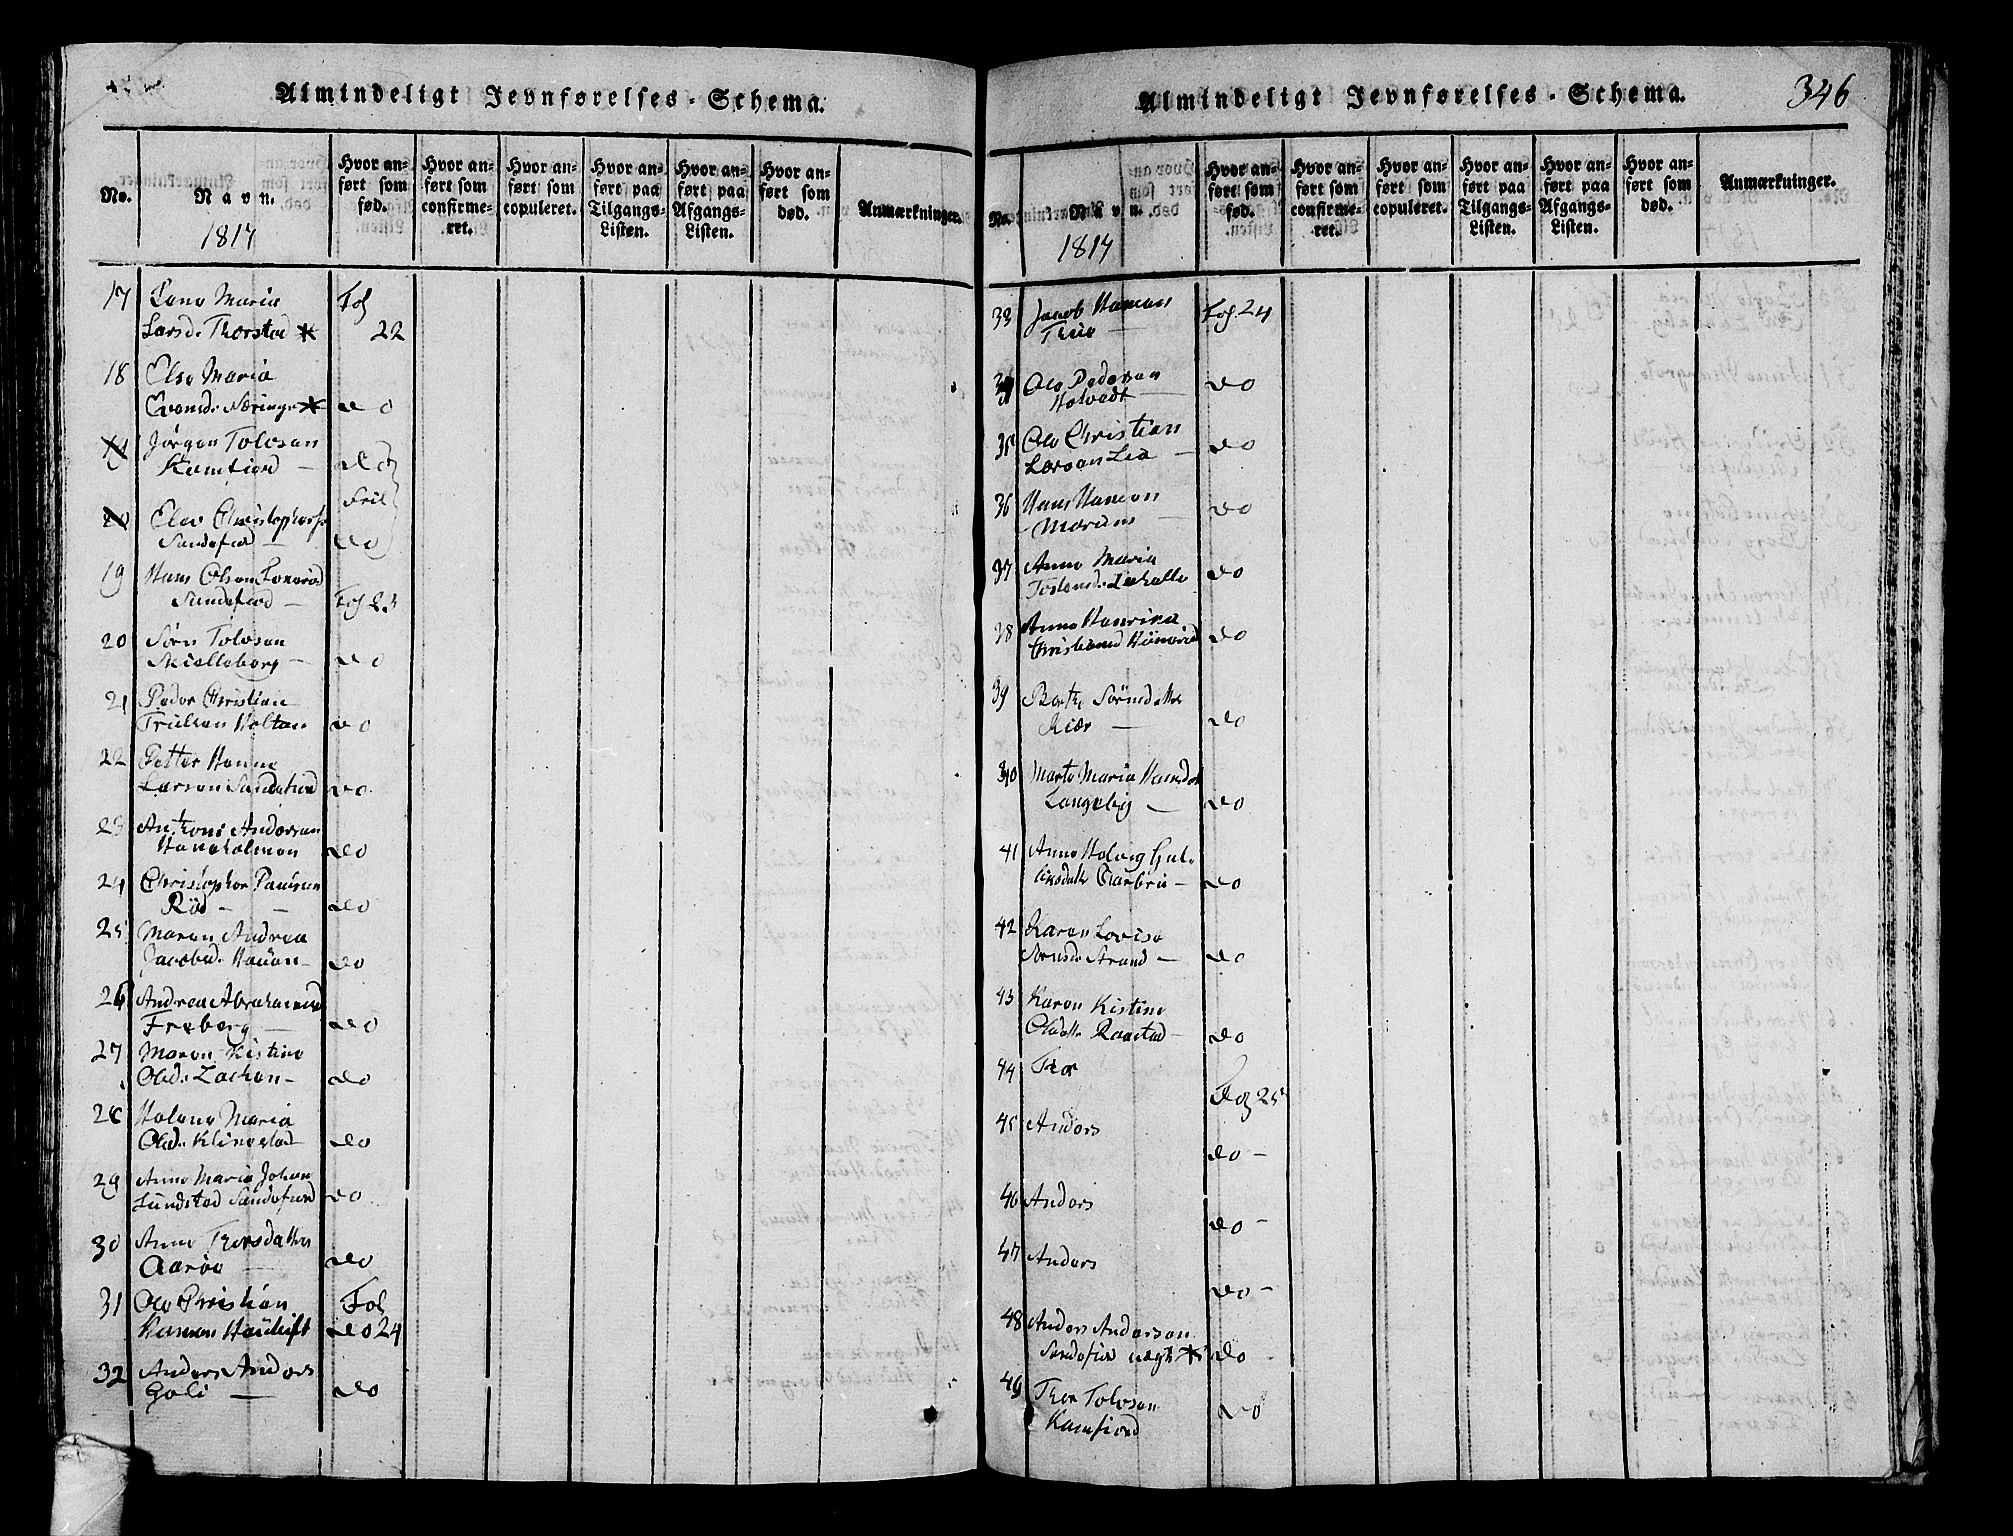 Almindeligt Jevnførelses-Schema.
No.
Navn.
1817
Hvor anført som fød.
Hvor anført som confirmeret.
Hvor anført som copuleret.
Hvor anført paa Tilgangs-Listen.
Hvor anført paa Afgangs-Listen.
Hvor anført som død.
Anmærkninger.
17 Lena Maria Fol
Larsd. Thorstad * 22
18 Else Maria
Evensd. Næringe * do
Jørgen Tolvsen
Kamfiord — do
Fril
Elev Christophers
Sandefiord — do
19 Hans Olsen
Sandefiord — Fol 23
20 Sørn Tolvsen
Mielleborg — do
21 Peder Christian
Trulsen Holtan do
22 Petter Hanna
Larsen Sandefiord do
23 Anthoni Andersen
Haneholmen do
24 Christopher Paulsen
Röd — — do
25 Maren Andrea
Jacobsd. Haüan — do
26 Andrea Abrahamsd
Freberg — do
27 Maren Kistine
Olsd. Zachen — do
28 Helene Maria
Olsd. Klinestad do
29 Anne Maria Johan
Lundsted Sandefiord do
30 Anne Thorsdatter
Aaröe — do
31 Ole Christian Fol
Hansen do 24
32 Anders Anders
Goli — do
Almindeligt Jevnførelses-Schema.
346
No.
Navn.
1817
Hvor anført som fød.
Hvor anført som confirmeret.
Hvor anført som copuleret.
Hvor anført paa Tilgangs-Listen.
Hvor anført paa Afgangs-Listen.
Hvor anført som død.
Anmærkninger.
33 Jacob Hansen Fol. 24
—
34 Ole Pedersen do
Holvedt —
35 Ole Christian do
Larsen Lia —
36 Hans Hansen do
—
37 Anne Maria do
38 Anne Henrica do
39 Berthe Sörensdatter
Kiær — do
40 Marte Maria Hansdat
Langeby — do
41 Anne Helvig Gul-
liksdatt — do
42 Karen Lovise
Sörnsd. Strand — do
43 Karen Kistine
Olsdatt Raastad — do
44 Thor
Fol 25
45 Anders
do —
46 Anders
do —
47 Anders
do —
48 Anders Andersen
Sandefiord * do
49 Thor Tolvsen do
Kamfiord